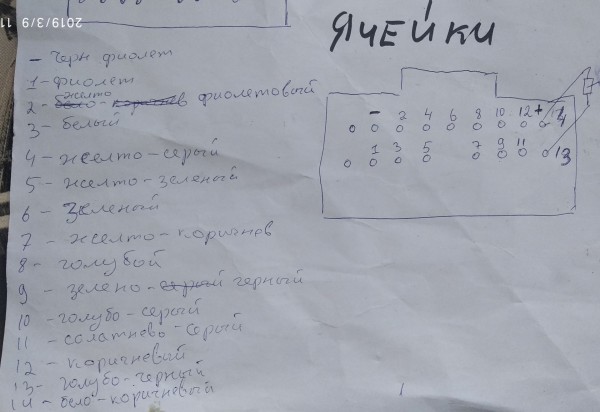 2019/3/9 11:
ЯЧЕЙКИ
- Черн фиолет
1 - фиолет
2 - желто - фиолетовый
3 - белый
4 - желто - серый
5 - желто - зеленый
6 - Зеленый
7 - желто - коричнев
8 - голубой
9 - зелено - серый черный
10 - голубо - серый
11 - солатнево - серый
12 - коричневый
13 - голубо - черный
14 - бело - коричневый
- 2 4 6 8 10 12 + 14
1 3 5 7 9 11 13